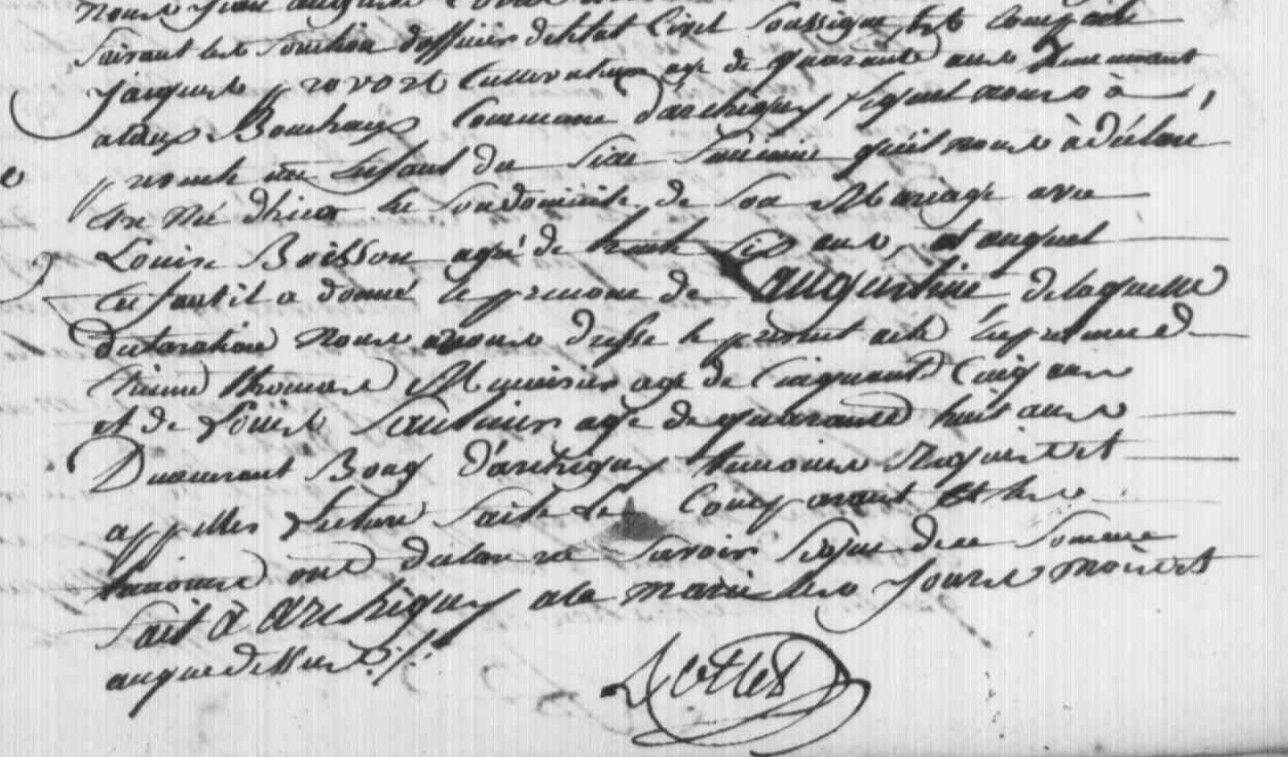 nous Jean auguste
faisant les fonction dofficier detetat Civil Soussigné, Est Comparu
jacques provost Cultivateur age de quarante ans Demeurant
Commune d'archigny, lequel nous à
presenté un Enfant du Sixe feminin qu'il nous à déclaré
être Né d'hier en Son domicile de Son Mariage avec
Louise Brisson agé de trente Six ans, et auquel
Enfant il a donné le prenome de augustine de laquelle
declaration Nous avons dressé le present acte En presence de
Etienne thomas Menuisier age de Cinquante Cinq ans
et de Louis Saulnier age de quarante huit ans
Demeurant Bourg d'archigny temoins Requis Et
appellés Lecture faite Le Comparant Et les
temoins ont declaré ne Savoir Signe de ce Somme
fait à archigny a la mairie les Jours mois Et
an que dessus ./.
Cottet